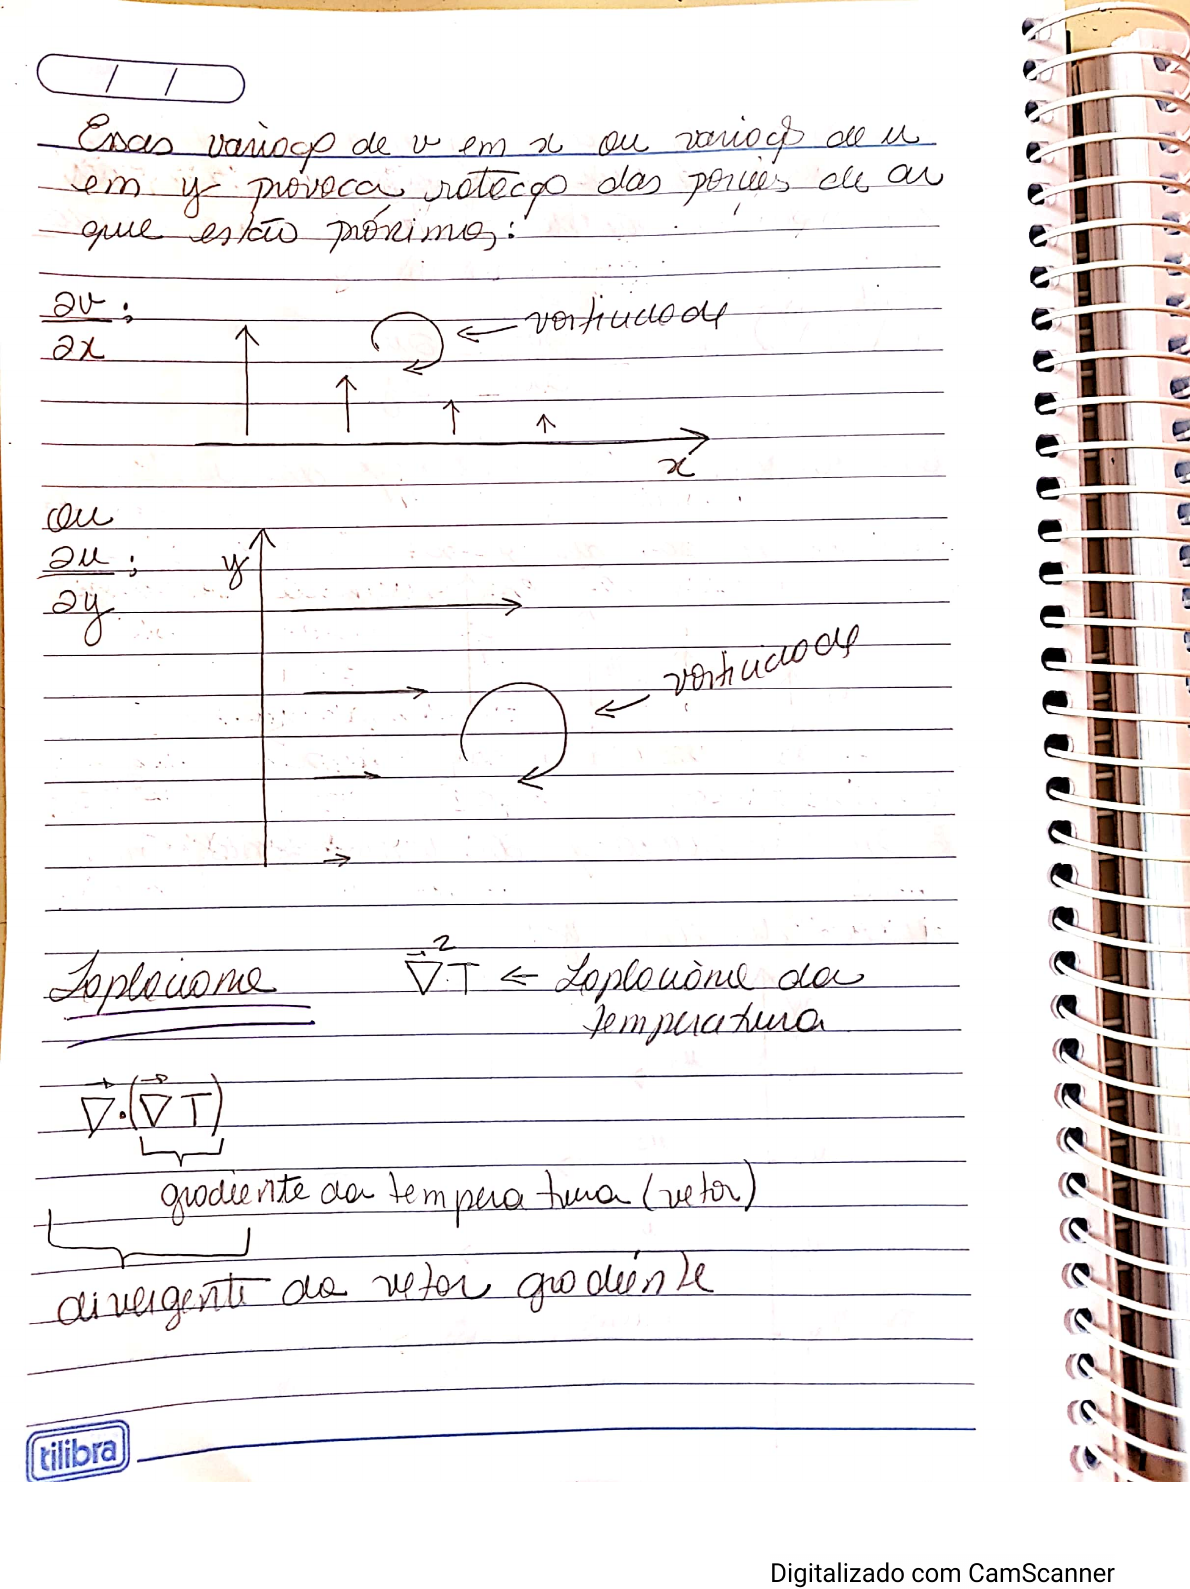 / /
Essas variação de v em x ou variação de u
em y provoca rotação das porções de ar
que estão próximos:
∂v ;
∂x
vorticidade
x
ou
∂u ;
∂y
y
vorticidade
Laplaciano
∇⃗²T ← Laplaciano da
temperatura
∇⃗·(∇⃗T)
gradiente da temperatura (vetor)
divergente do vetor gradiente
tilibra
Digitalizado com CamScanner